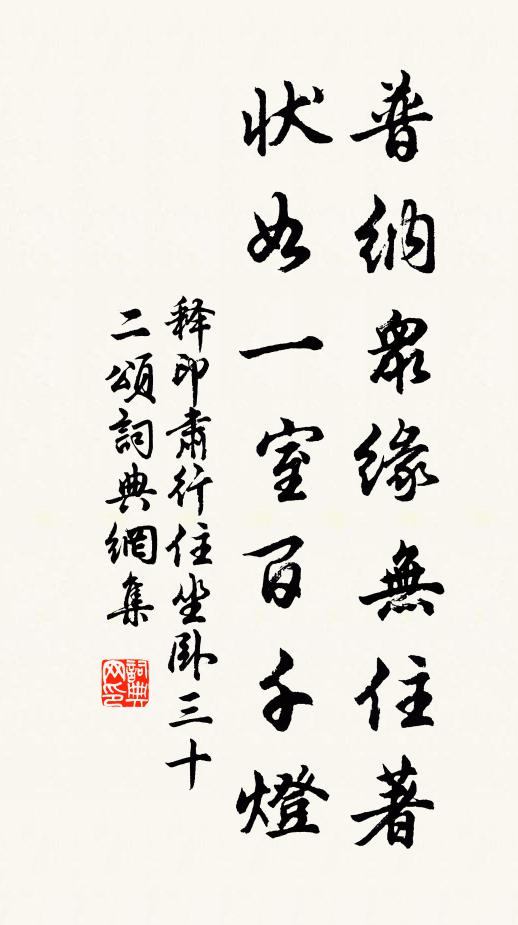 普納眾緣無住著
狀如一室百千燈
释印肅行住坐臥三十
二頌詞典網集
詞典网印